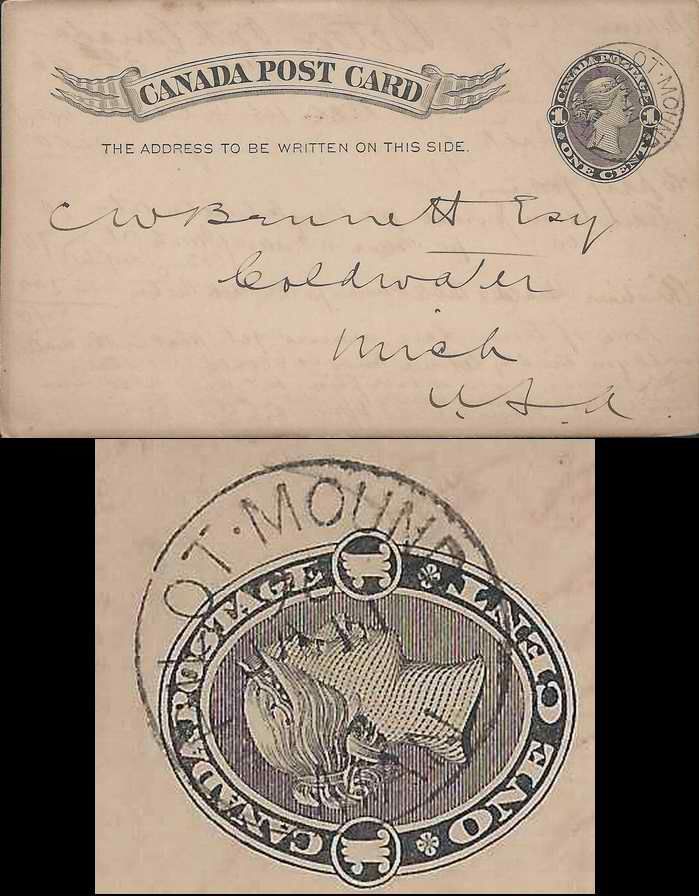 CANADA POST CARD
THE ADDRESS TO BE WRITTEN ON THIS SIDE.
CANADA POSTAGE
1 1
ONE CENT
OT·MOUND
C W Bennett Esq
Coldwater
Mich
U.S.A.
OT·MOUND
CANADA POSTAGE
1 1
ONE CENT